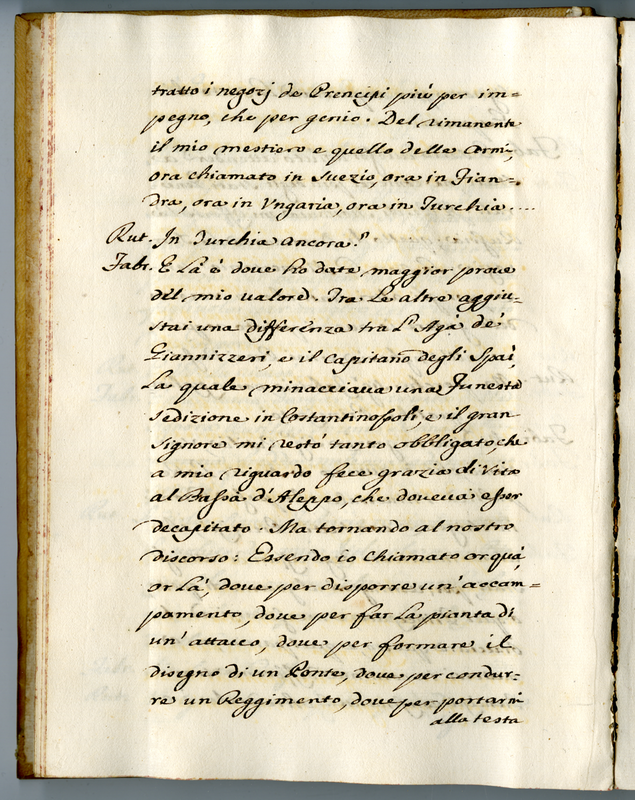 tratto i negozj de Prencipi più per im=
pegno, che per genio. Del rimanente
il mio mestiero e quello delle Armi,
ora chiamato in Suezia, ora in Fian=
dra, ora in Vngaria, ora in Turchia....
Rut. In Turchia ancora?
Fabr. E là è dove ho date maggior prove
del mio valore. Tra le altre aggiu=
stai una differenza tra l'Agà de'
Giannizzeri, e il Capitano degli Spai,
la quale minacciava una funesta
sedizione in Costantinopoli, e il gran
Signore mi restò tanto obbligato, che
a mio riguardo fece grazia di vita
al Bassà d'Aleppo, che doveva esser
decapitato. Ma tornando al nostro
discorso: Essendo io chiamato or quà,
or là, dove per disporre un'accam=
pamento, dove per far la pianta di
un'attacco, dove per formare il
disegno di un Ponte, dove per condur=
re un Reggimento, dove per portarmi
alla testa